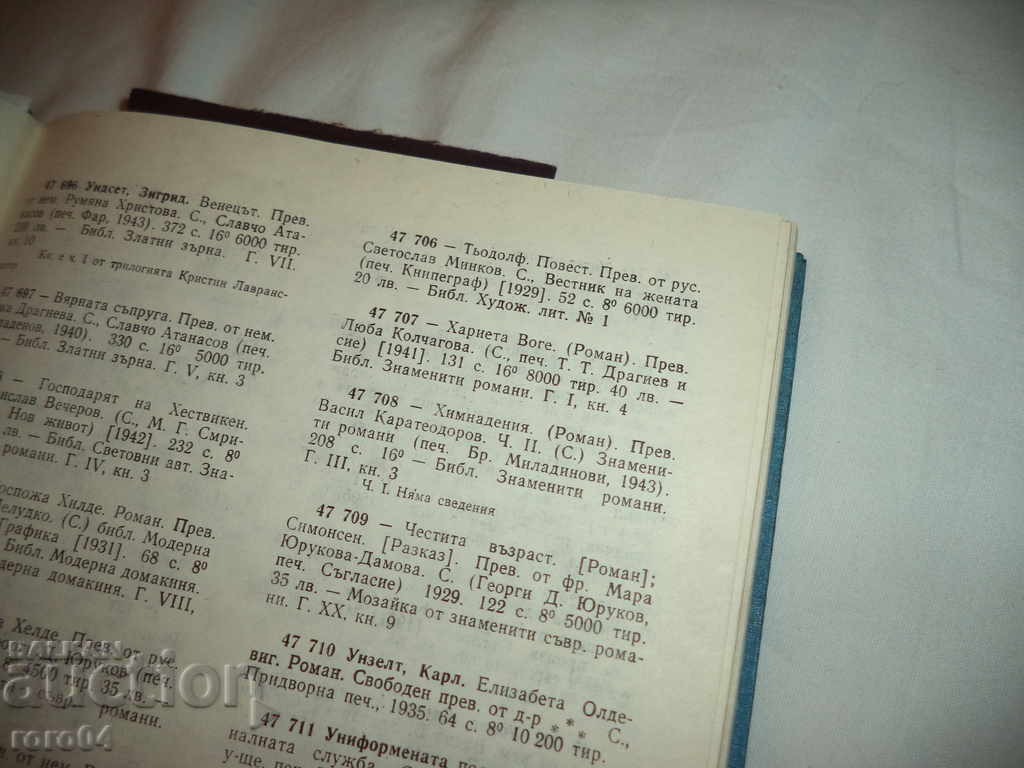 47 696 Ундсет, Зигрид. Венецът. Прев.
от нем. Румяна Христова. С., Славчо Ата-
насов (печ. Фар, 1943). 372 с. 16⁰ 6000 тир.
лв. — Библ. Златни зърна. Г. VII.
кн. 10
Кн. е ч. I от трилогията Кристин Лавранс-
47 697 — Вярната съпруга. Прев. от нем.
Драгнева. С., Славчо Атанасов (печ.
1940). 330 с. 16⁰ 5000 тир.
— Библ. Златни зърна. Г. V, кн. 3
— Господарят на Хествикен.
Вечеров. (С., М. Г. Смри-
Нов живот) [1942]. 232 с. 8⁰
лв. — Библ. Световни авт. Зна-
романи. Г. IV, кн. 3
Хилде. Роман. Прев.
(С.) библ. Модерна
[1931]. 68 с. 8⁰
Библ. Модерна домакиня.
домакиня. Г. VIII,
Хелде. Прев.
от рус.
(печ.
4500 тир 35 лв.
съвр. романи.
от нем.
47 706 — Тьодолф. Повест. Прев. от рус.
Светослав Минков. С., Вестник на жената
(печ. Книпеграф) [1929]. 52 с. 8⁰ 6000 тир.
20 лв. — Библ. Худож. лит. № 1
47 707 — Хариета Воге. (Роман). Прев.
Люба Колчагова. (С., печ. Т. Т. Драгиев и
сие) [1941]. 131 с. 16⁰ 8000 тир. 40 лв. —
Библ. Знаменити романи. Г. I, кн. 4
47 708 — Химнадения. (Роман). Прев.
Васил Каратеодоров. Ч. II. (С.) Знамени-
ти романи (печ. Бр. Миладинови, 1943).
208 с. 16⁰ — Библ. Знаменити романи.
Г. III, кн. 3
Ч. I. Няма сведения
47 709 — Честита възраст. [Роман];
Симонсен. [Разказ]. Прев. от фр. Мара
Юрукова-Дамова. С. (Георги Д. Юруков,
печ. Съгласие) 1929. 122 с. 8⁰ 5000 тир.
35 лв. — Мозайка от знаменити съвр. рома-
ни. Г. XX, кн. 9
47 710 Унзелт, Карл. Елизабета Олде-
виг. Роман. Свободен прев. от д-р * * * С.,
Придворна печ., 1935. 64 с. 8⁰ 10 200 тир.
47 711 Униформената
иалната служба.
BALKAN
auction
roro04